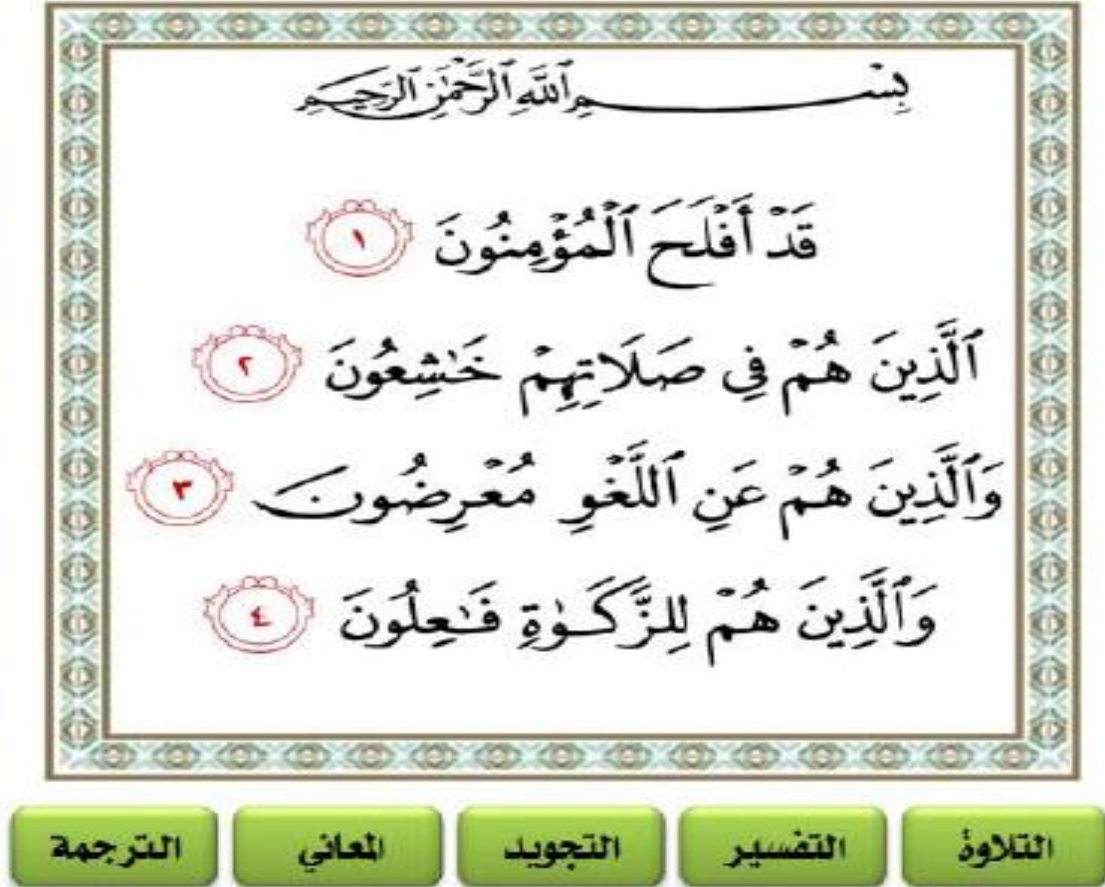 بِسْمِ ٱللَّهِ ٱلرَّحْمَٰنِ ٱلرَّحِيمِ
قَدْ أَفْلَحَ ٱلْمُؤْمِنُونَ ١
ٱلَّذِينَ هُمْ فِى صَلَاتِهِمْ خَٰشِعُونَ ٢
وَٱلَّذِينَ هُمْ عَنِ ٱللَّغْوِ مُعْرِضُونَ ٣
وَٱلَّذِينَ هُمْ لِلزَّكَوٰةِ فَٰعِلُونَ ٤
التلاوة التفسير التجويد المعاني الترجمة